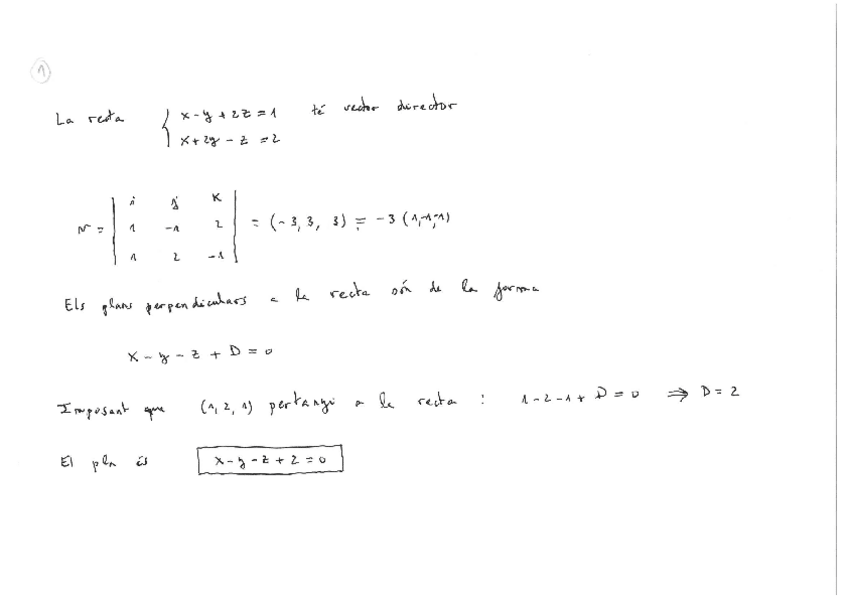 1
La recta { x - y + 2z = 1 té vector director
x + 2y - z = 2
i j K
v = 1 -1 2 = (-3, 3, 3) = -3 (1,-1,-1)
1 2 -1
Els plans perpendiculars a la recta són de la forma
x - y - z + D = 0
Imposant que (1, 2, 1) pertanyi a la recta : 1 - 2 - 1 + D = 0 ⇒ D = 2
El pla és x - y - z + 2 = 0